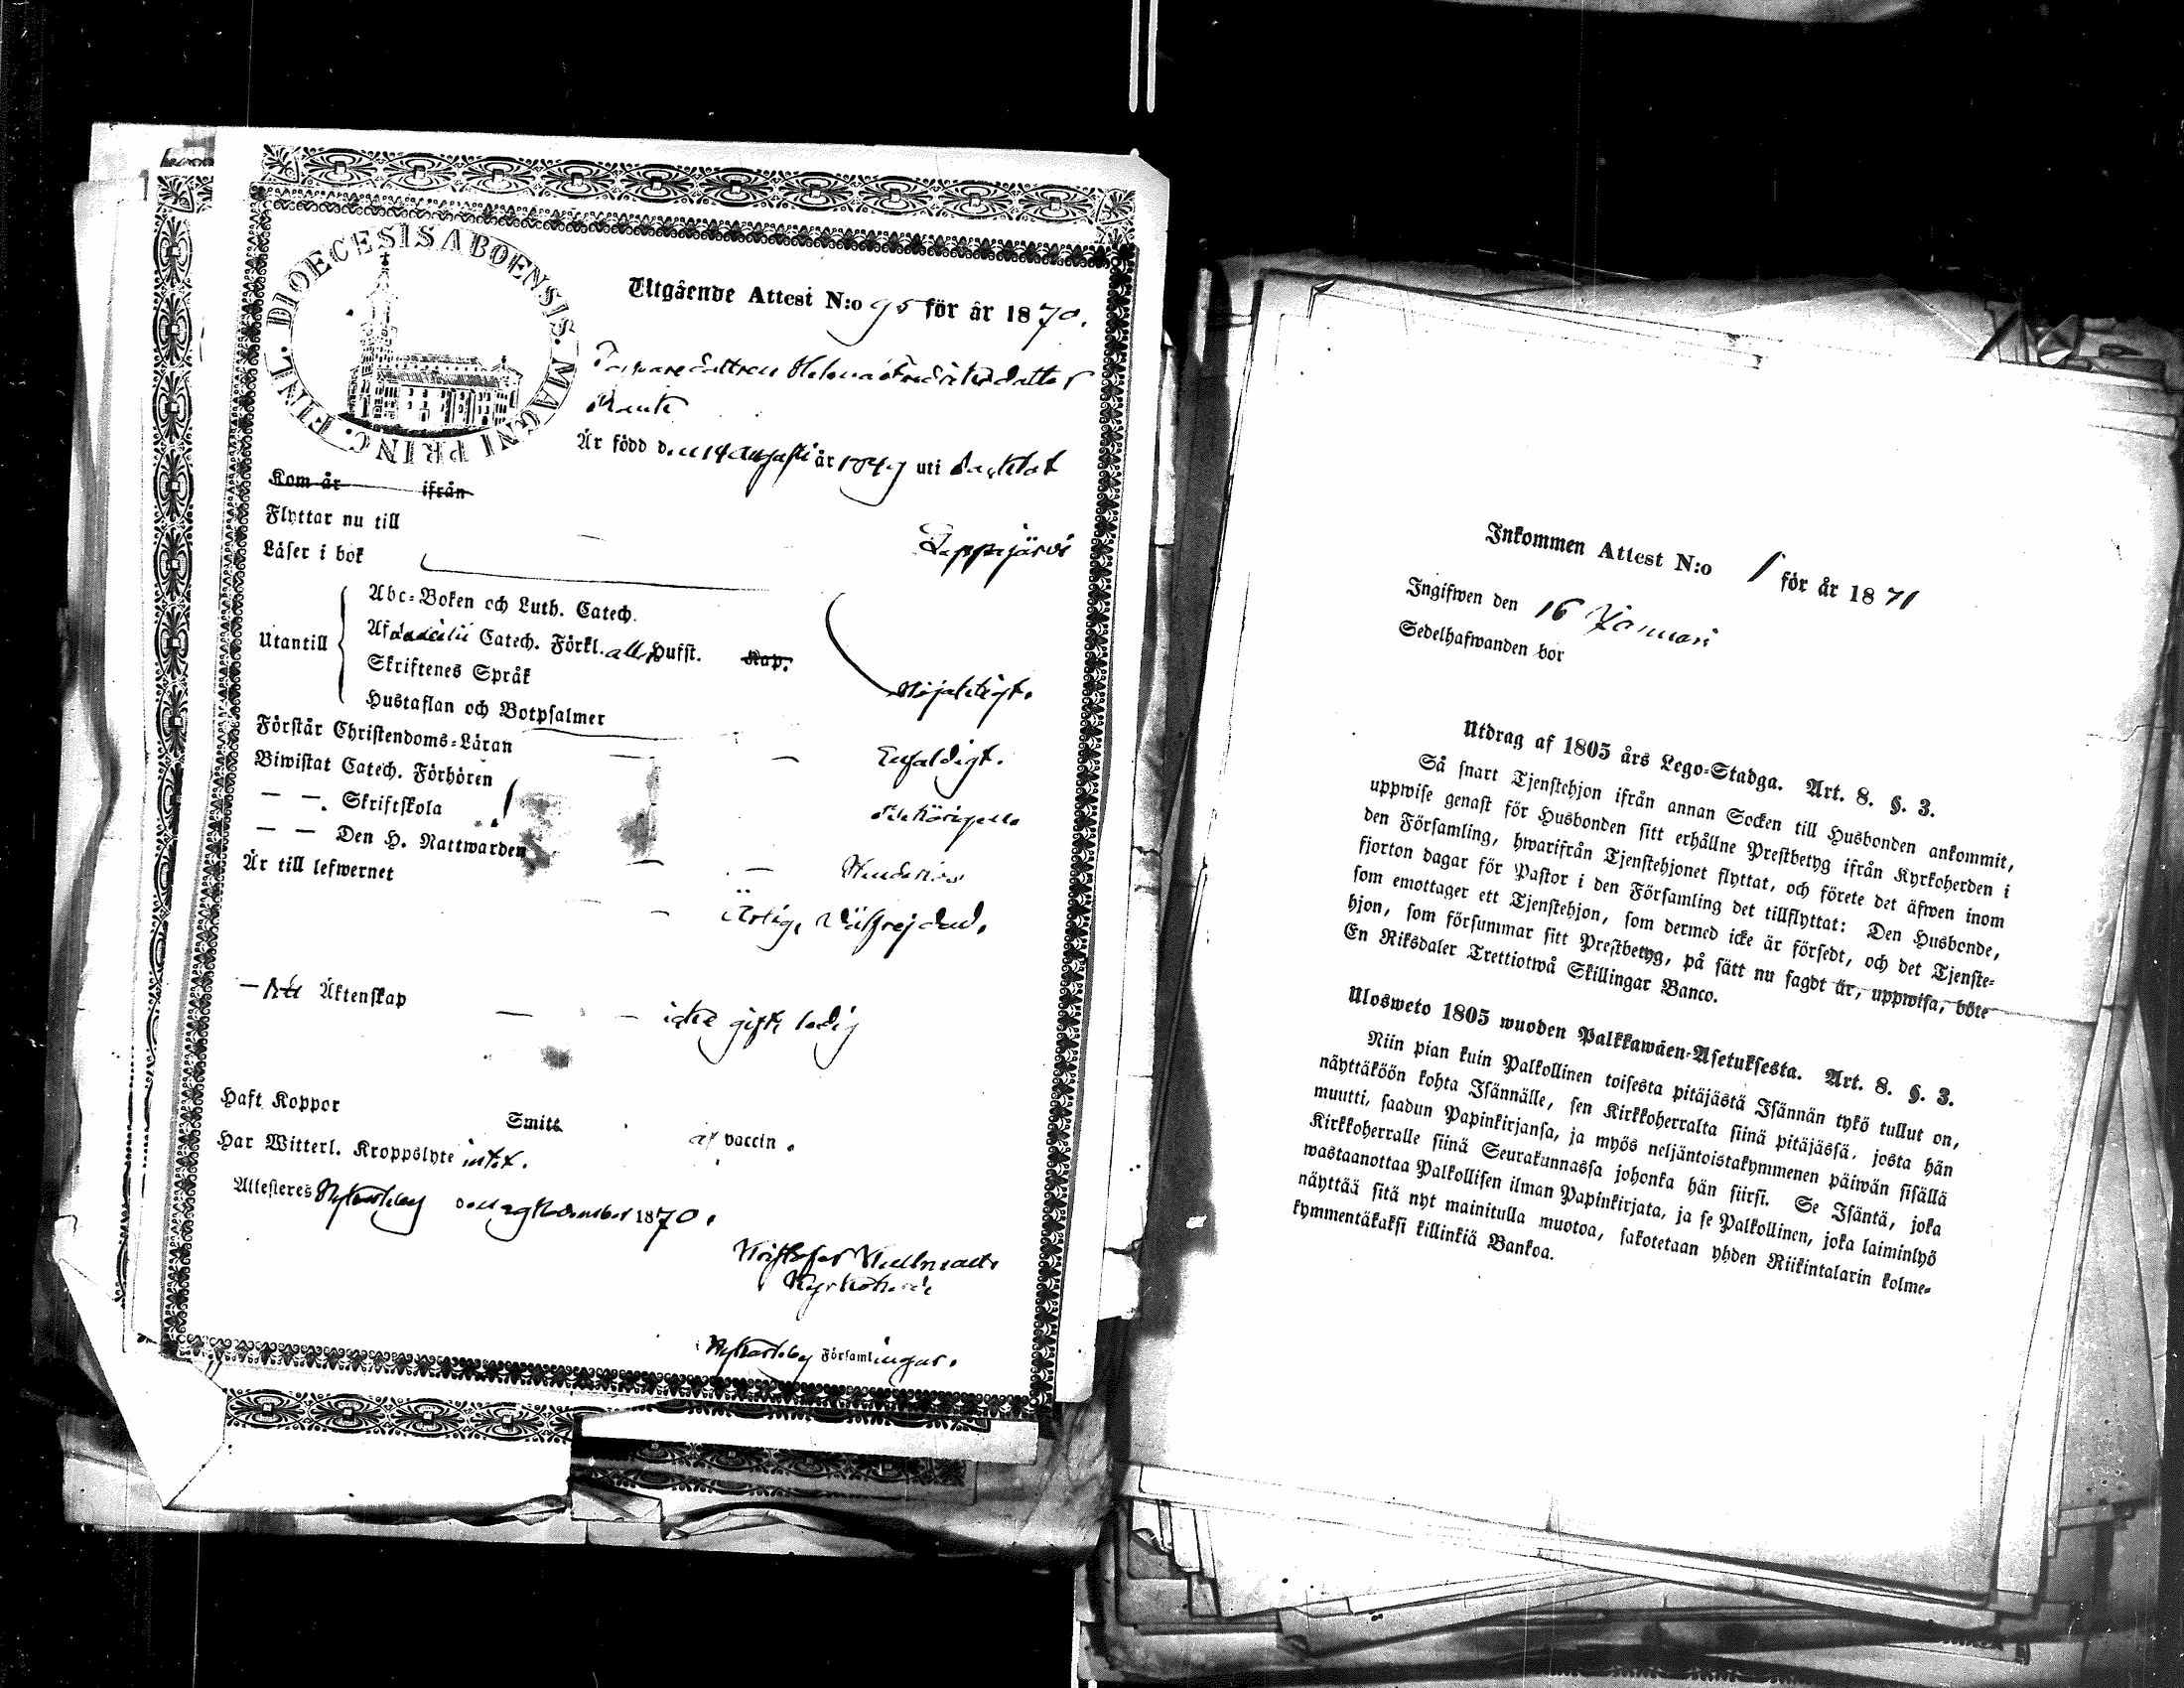 DIOECESIS ABOENSIS. MAGNI PRINC. FINL.
Utgående Attest N:o 95 för år 1870.
Helena Fredriksdotter
Är född den 14 Augusti år 1849 uti
Kom år ifrån
Flyttar nu till Lappajärvi
Läser i bok
Utantill
Abc-Boken och Luth. Catech.
Af Catech. Förkl. alla Hufst. Kap.
Skriftenes Språk
Hustaflan och Botpsalmer
Nöjaktigt.
Förstår Christendoms-Läran Enfaldigt.
Biwistat Catech. Förhören
— — Skriftskola
— — Den H. Nattwarden
Är till lefwernet
Ärlig, Välfrejdad.
Äktenskap icke gift, ledig
Haft Koppor Smitt af vaccin.
Har Witterl. Kroppslyte intet.
Attesteres Nykarleby den 29 November 1870.
Kyrkoherde
Nykarleby Församlingar.
Inkommen Attest N:o 1 för år 1871
Ingifwen den 16 Januari
Sedelhafwanden bor
Utdrag af 1805 års Lego-Stadga. Art. 8. §. 3.
Så snart Tjenstehjon ifrån annan Socken till Husbonden ankommit,
uppwise genast för Husbonden sitt erhållne Prestbetyg ifrån Kyrkoherden i
den Församling, hwarifrån Tjenstehjonet flyttat, och förete det äfwen inom
fjorton dagar för Pastor i den Församling det tillflyttat: Den Husbonde,
som emottager ett Tjenstehjon, som dermed icke är försedt, och det Tjenste-
hjon, som försummar sitt Prestbetyg, på sätt nu sagdt är, uppwisa, böte
En Riksdaler Trettiotwå Skillingar Banco.
Ulosweto 1805 wuoden Palkkawäen-Asetuksesta. Art. 8. §. 3.
Niin pian kuin Palkollinen toisesta pitäjästä Isännän tykö tullut on,
näyttäköön kohta Isännälle, sen Kirkkoherralta siinä pitäjässä, josta hän
muutti, saadun Papinkirjansa, ja myös neljäntoistakymmenen päiwän sisällä
Kirkkoherralle siinä Seurakunnassa johonka hän siirsi. Se Isäntä, joka
wastaanottaa Palkollisen ilman Papinkirjata, ja se Palkollinen, joka laiminlyö
näyttää sitä nyt mainitulla muotoa, sakotetaan yhden Riikintalarin kolme-
kymmentäkaksi killinkiä Bankoa.